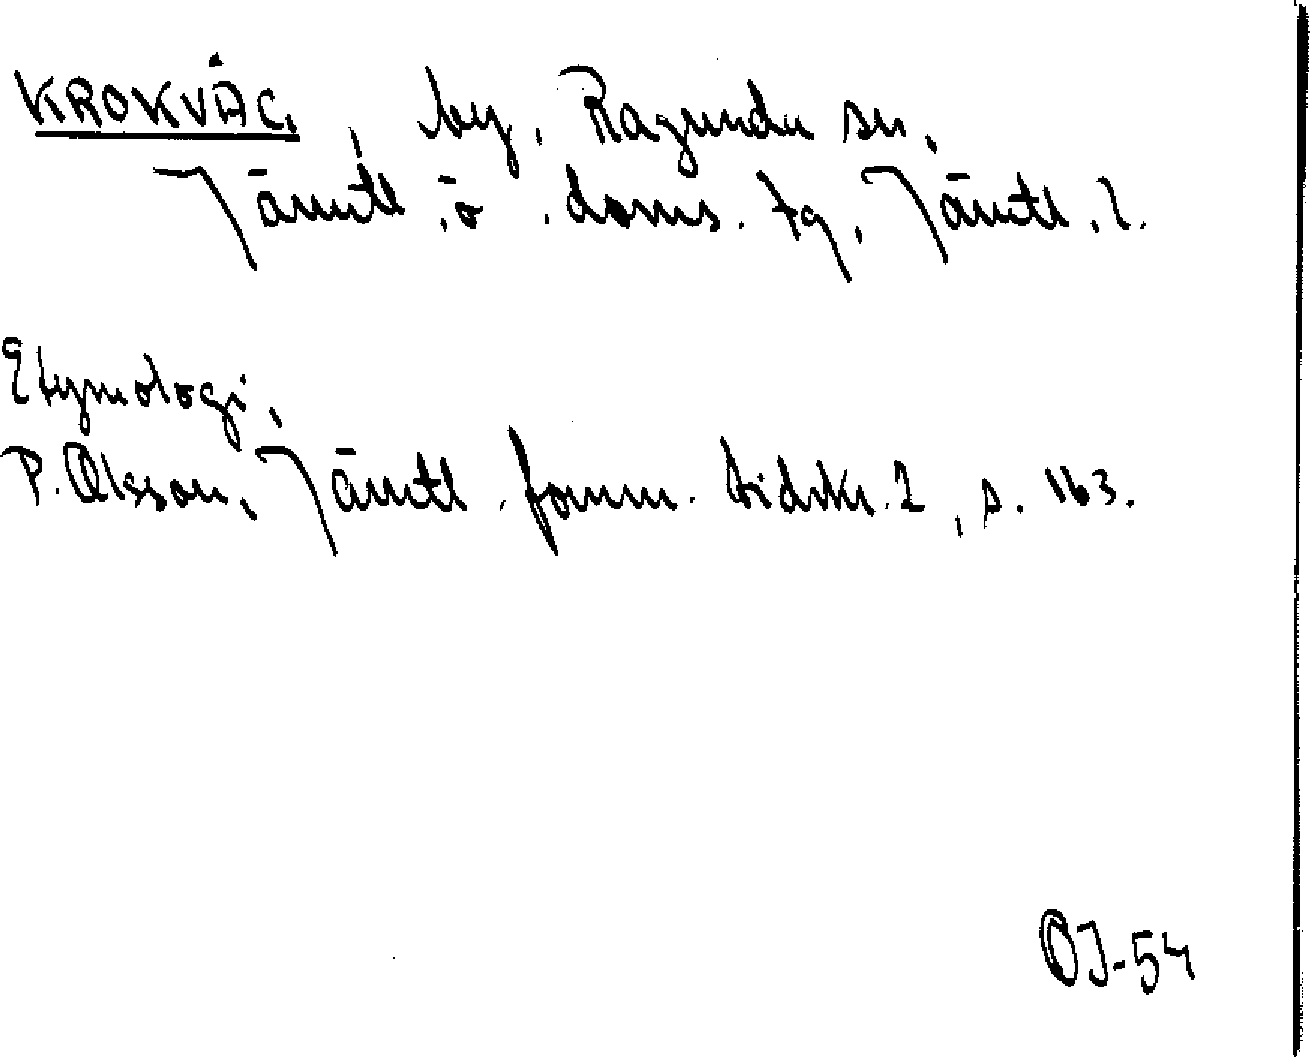 KROKVÅG, by, Ragunda sn,
Jämtl. ö. doms. tg, Jämtl. l.
Etymologi,
P. Olsson, Jämtl. fornm. tidskr. 2, s. 163.
OJ-54